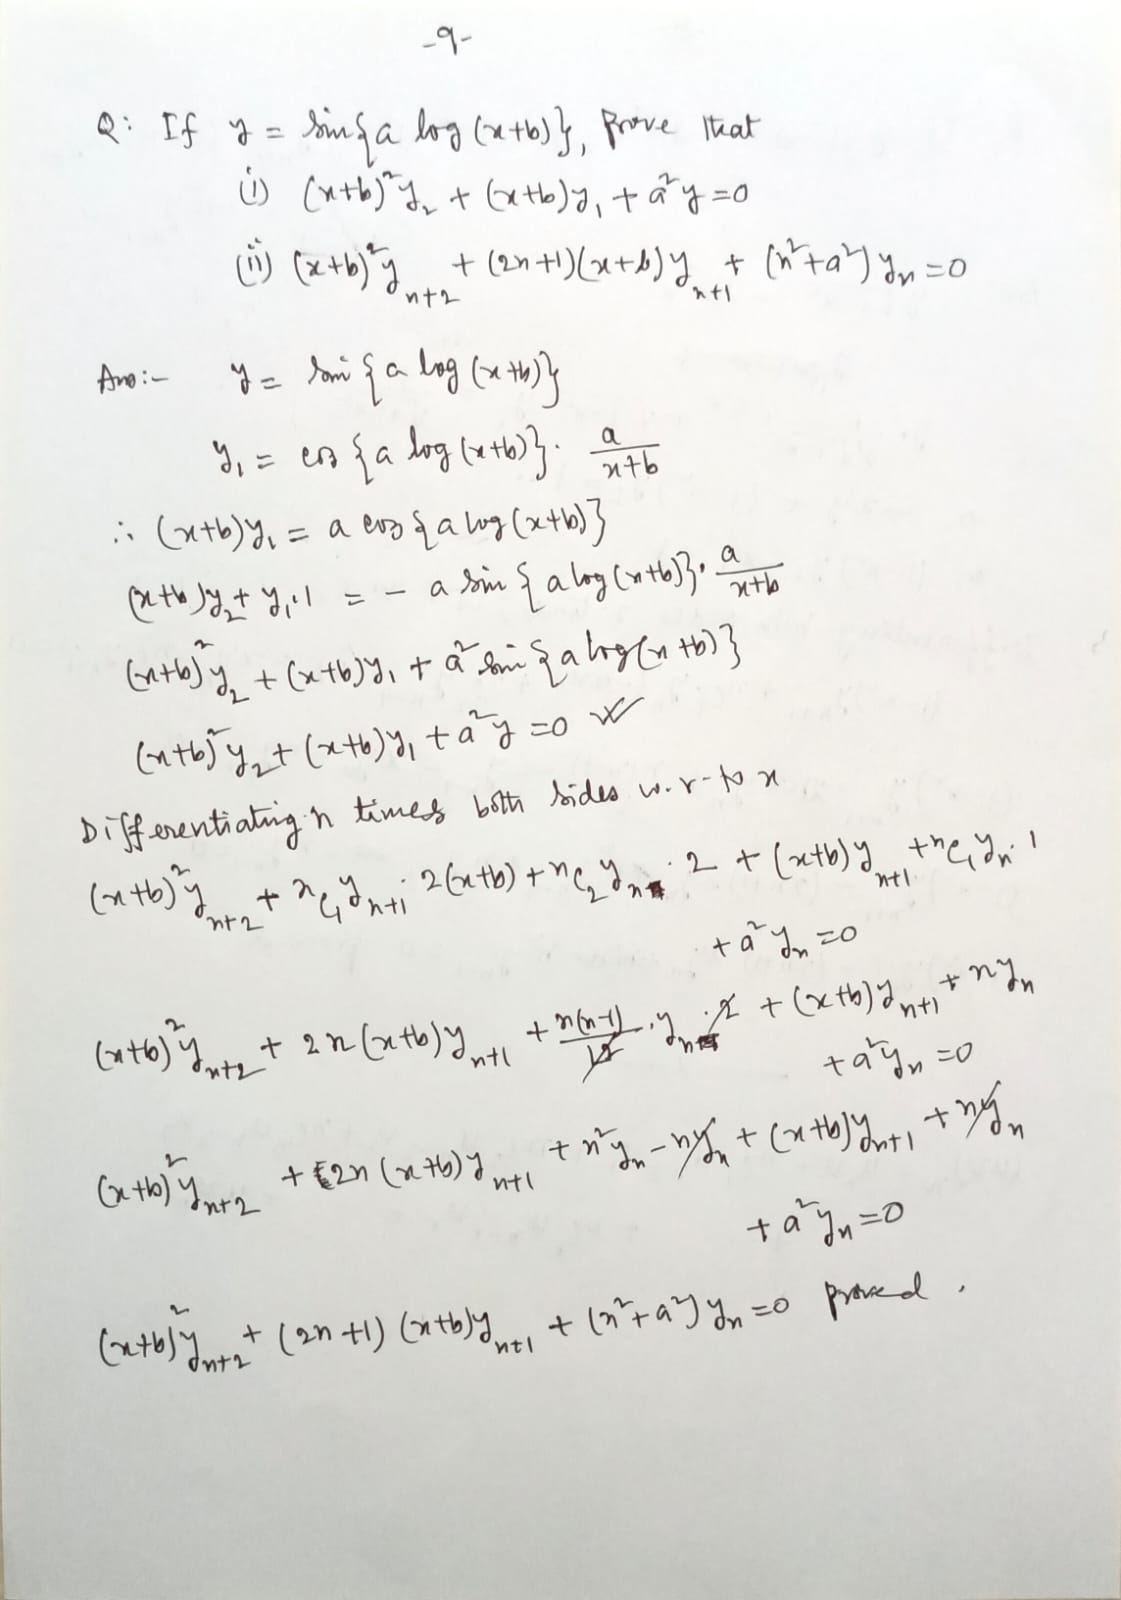 -9-
Q: If y = sin{a log(x+b)}, prove that
(i) (x+b)²y₂ + (x+b)y₁ + a²y = 0
(ii) (x+b)²yₙ₊₂ + (2n+1)(x+b)yₙ₊₁ + (n²+a²)yₙ = 0
Ans:- y = sin{a log(x+b)}
y₁ = cos{a log(x+b)}. a/(x+b)
∴ (x+b)y₁ = a cos{a log(x+b)}
(x+b)y₂ + y₁.1 = - a sin{a log(x+b)}. a/(x+b)
(x+b)²y₂ + (x+b)y₁ + a² sin{a log(x+b)}
(x+b)²y₂ + (x+b)y₁ + a²y = 0
Differentiating n times both sides w.r-to x
(x+b)²yₙ₊₂ + ⁿC₁yₙ₊₁.2(x+b) + ⁿC₂yₙ.2 + (x+b)yₙ₊₁ + ⁿC₁yₙ.1
+ a²yₙ = 0
(x+b)²yₙ₊₂ + 2n(x+b)yₙ₊₁ + n(n-1)/2.yₙ.2 + (x+b)yₙ₊₁ + nyₙ
+ a²yₙ = 0
(x+b)²yₙ₊₂ + 2n(x+b)yₙ₊₁ + n²yₙ - nyₙ + (x+b)yₙ₊₁ + nyₙ
+ a²yₙ = 0
(x+b)²yₙ₊₂ + (2n+1)(x+b)yₙ₊₁ + (n²+a²)yₙ = 0 proved.